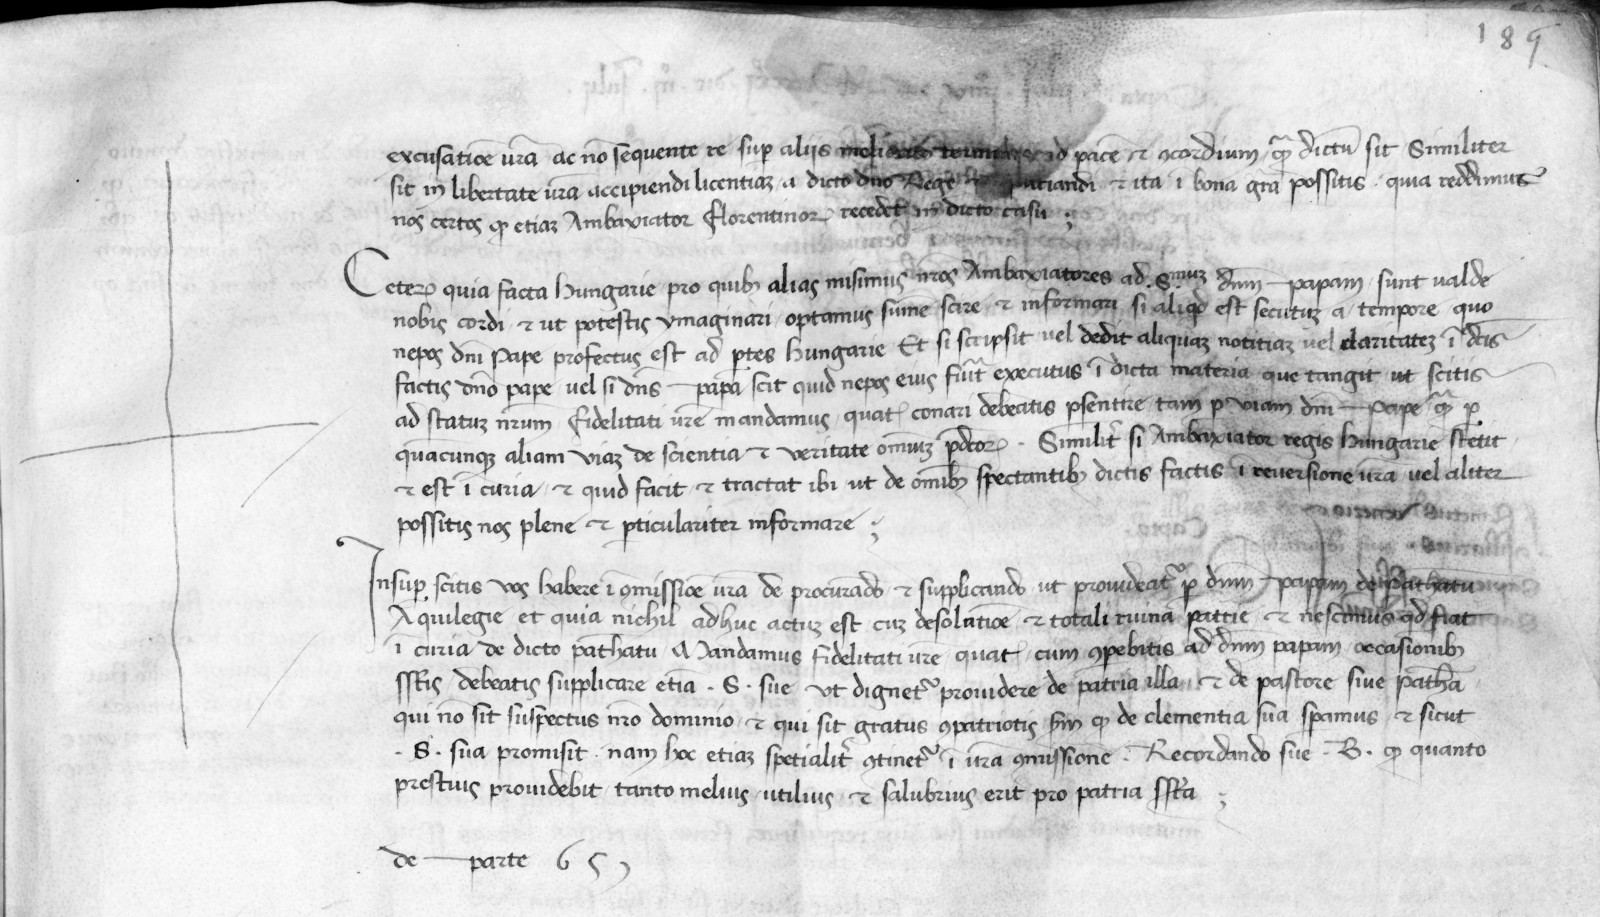 189
excusatioe vra ac no sequente re sup aliis melioribus terminis ad pace et concordium, qm dictu sit Similiter
sit in libertate vra accipiendi licentiaz a dicto dno Rege et ita i bona gra possitis quia reddimus
nos certos qp etiaz Ambaxiator Florentinor recedet in dicto casu ;
Ceter quia facta Hungarie pro quib alias misimus nros Ambaxiatores ad S.muz dnm papam sunt valde
nobis cordi et ut potestis ymaginari optamus sume scire et informari si aliqd est secutuz a tempore quo
nepos dni Pape profectus est ad ptes Hungarie Et si scripsit vel dedit aliquaz notitiaz vel claritatez i dcis
factis dno pape vel si dns papa scit quid nepos eius fiut executus i dicta materia que tangit ut scitis
ad statuz nrum Fidelitati vre mandamus quat conari debeatis psentire tam p viam dni Pape qm p
quacunqz aliam viaz de scientia et veritate omniuz pdcor. Similit si Ambaxiator regis Hungarie stetit
et est i curia et quid facit et tractat ibi ut de omib spectantib dictis factis i reversione vra vel aliter
possitis nos plene et pticulariter informare ;
Insup scitis vos habere i comissioe vra de procurado et supplicando ut provideat p dnm papam de Pathatu
Aquilegie et quia nichil adhuc actuz est cuz desolatioe et totali ruina patrie et nescimus qd fiat
i curia de dicto pathatu Mandamus fidelitati vre quat cum compebitis ad dnm papam occasionib
sstis debeatis supplicare etia .S. sue ut dignet providere de patria illa et de pastore sive patha
qui no sit suspectus nro dominio et qui sit gratus compatriotis scdm qp de clementia sua spamus et sicut
.S. sua promisit nam hoc etiaz spetialit continet i vra comissione. Recordando sue .B. qp quanto
prestius providebit tanto melius utilius et salubrius erit pro patria ssta ;
de parte 65